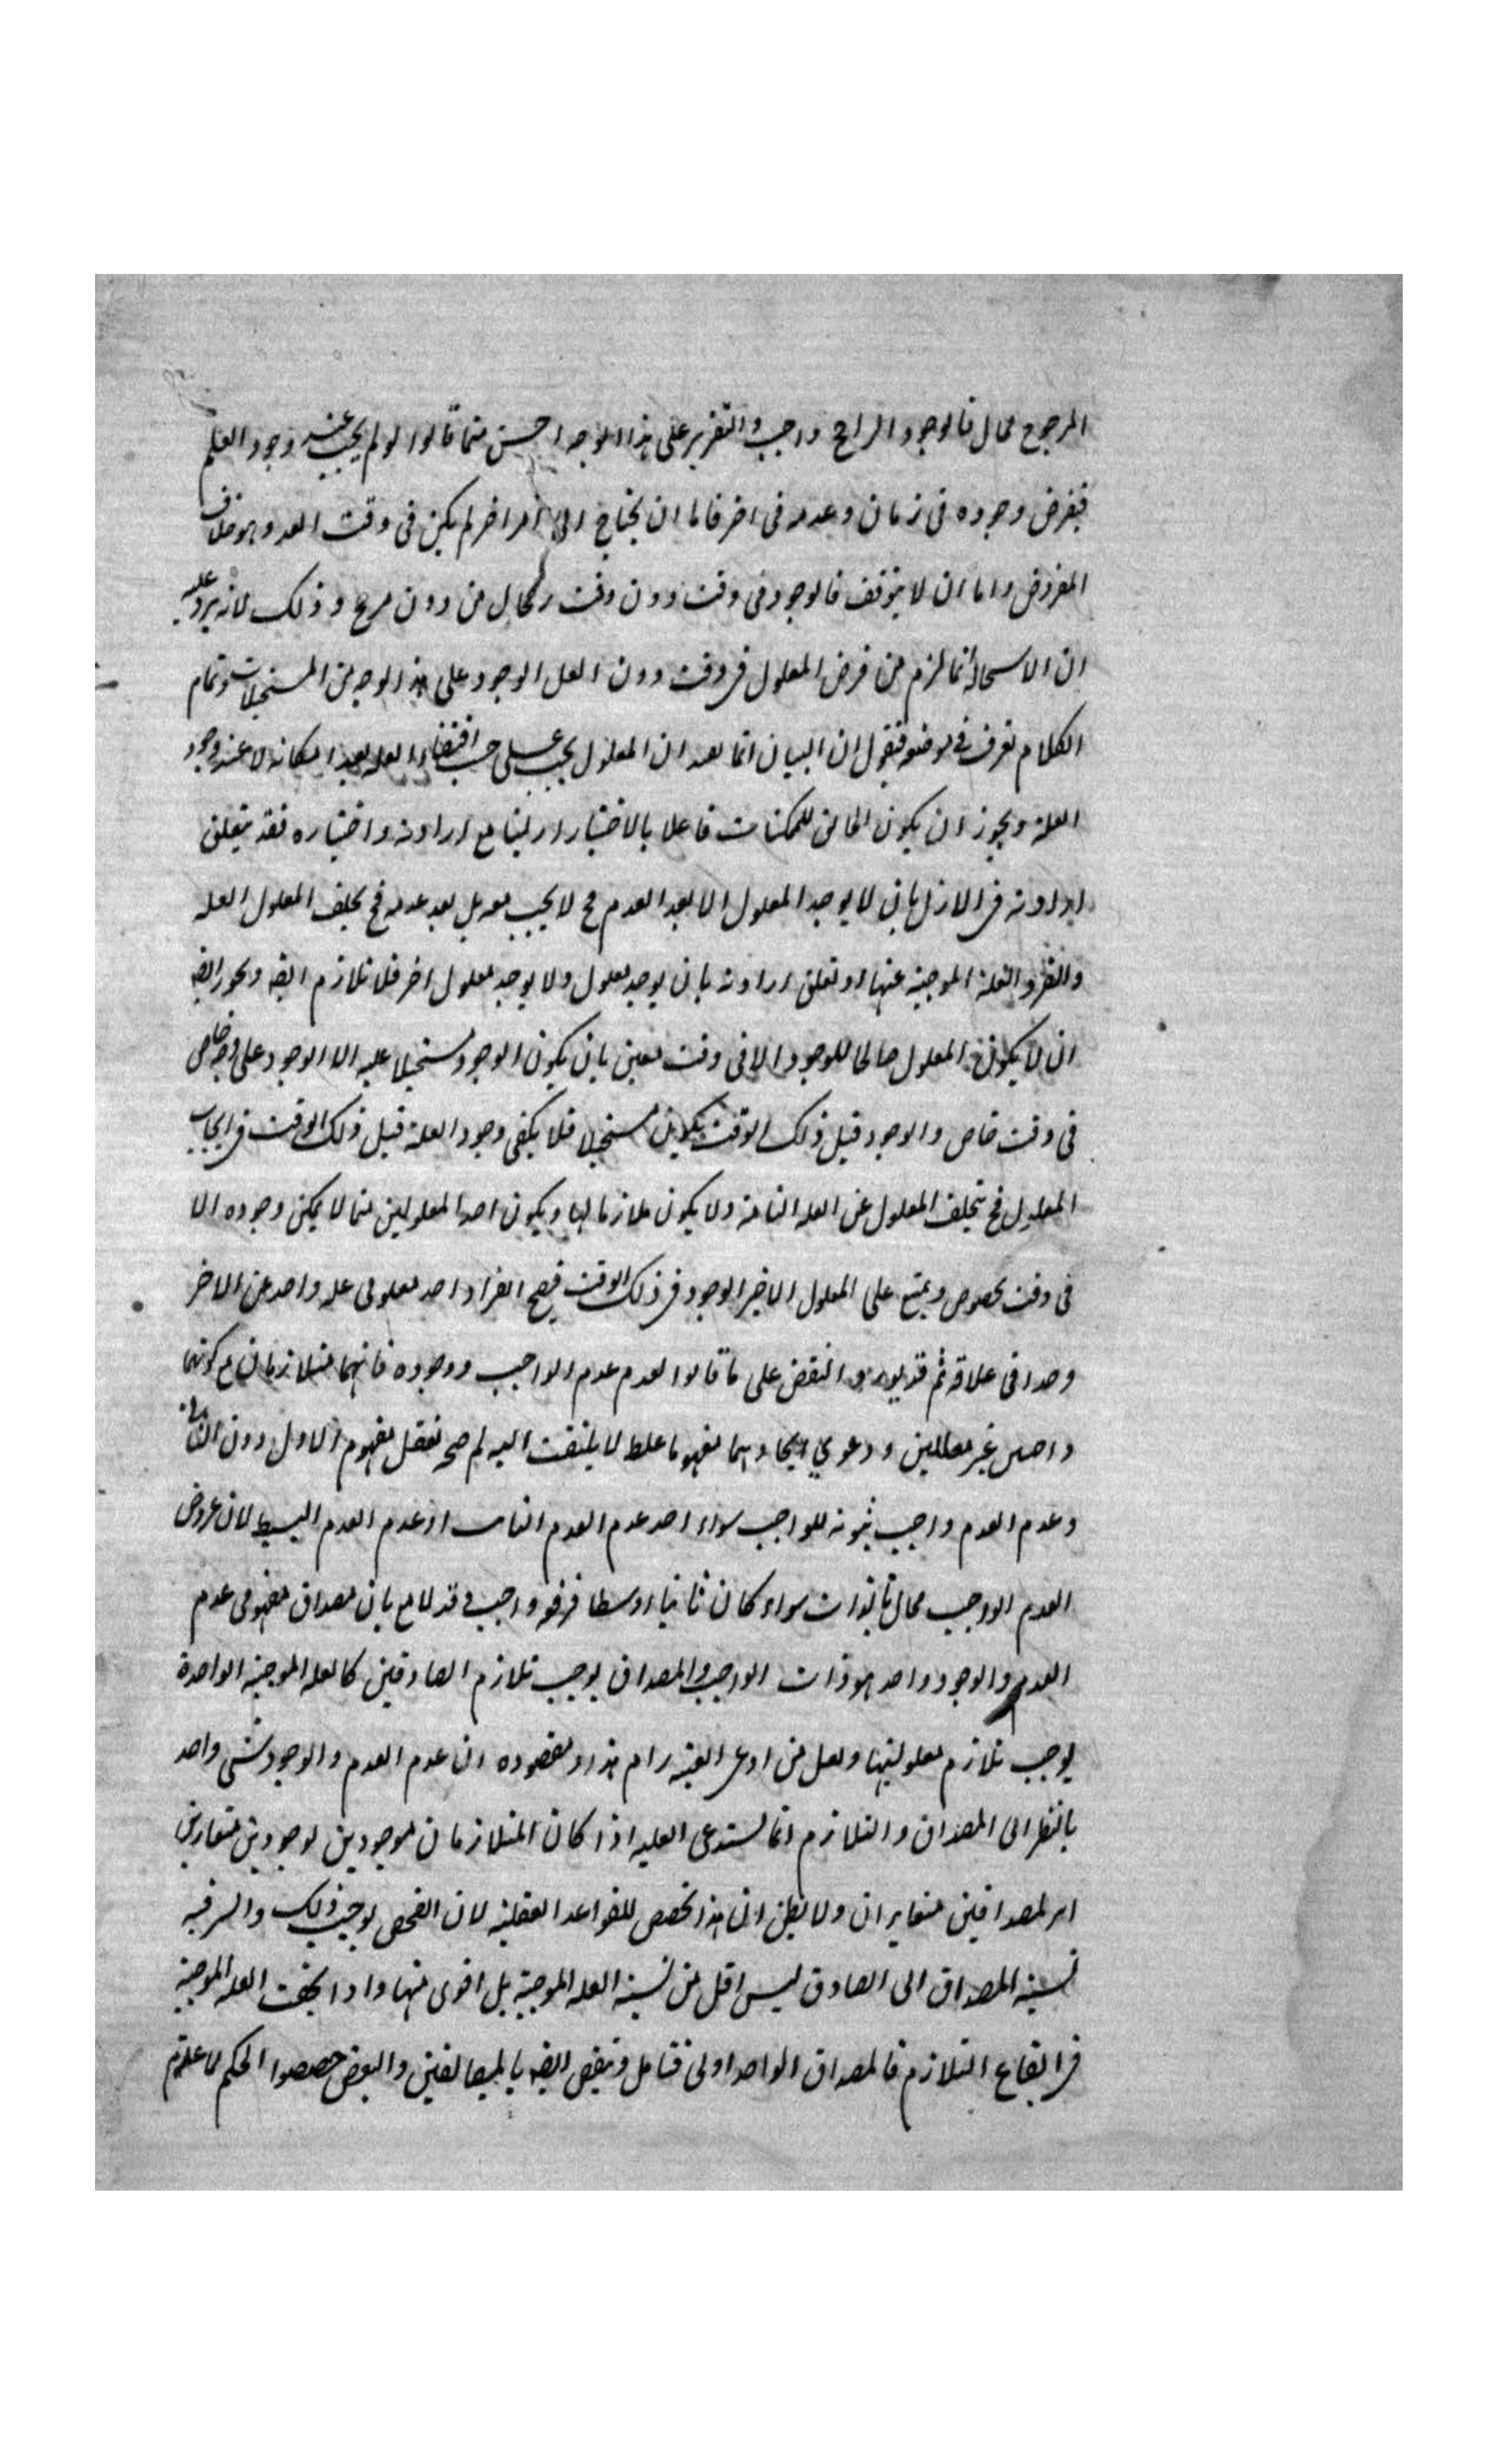 المرجوح محال فالوجود الراجح واجب والتقرير على هذا الوجه احسن مما قالوا لو لم يجب عند وجود العلة
فيفرض وجوده فى زمان وعدمه فى اخر فاما ان يحتاج الى امر اخر لم يكن فى وقت العدم وهو خلاف
المفروض واما ان لا يتوقف فالوجود فى وقت دون وقت رجحان من دون مرجح وذلك لانه يرد عليه
ان الاستحالة انما لزم من فرض المعلول فى وقت دون لعل الوجود على هذا الوجه من المستحيلات وتمام
الكلام نعرف فى موضعه فنقول ان البيان انما يفيد ان المعلول يجب على حسب اقتضاء العلة بعد امكانه لا عند وجود
العلة ويجوز ان يكون الخالق للممكنات فاعلا بالاختيار ازليا مع ارادته واختياره فقد يتعلق
ارادته فى الازل بان لا يوجد المعلول الا بعد العدم فح لا يجب معه بل بعد عدمه فح يخلف المعلول العلة
والعلة الموجبة عنها او تعلق ارادته بان يوجد معلول ولا يوجد معلول اخر فلا تلازم ايضه ويجوز ايضه
ان لا يكون المعلول صالحا للوجود الا فى وقت معين بان يكون الوجود مستحيلا عليه الا الوجود على وجه خاص
فى وقت خاص والوجود قبل ذلك الوقت يكون مستحيلا فلا يكفى وجود العلة قبل ذلك الوقت فى ايجاب
المعلول فح يتخلف المعلول عن العلة التامة ولا يكون ملازما لها ويكون احد المعلولين مما لا يمكن وجوده الا
فى وقت مخصوص ويمتنع على المعلول الاخير الوجود فى ذلك الوقت فيصح انفراد احد معلولى علة واحد عن الاخر
وحدا فى علاقة ثم قد يورد النقض على ما قالوا لعدم عدم الواجب ووجوده فانهما متلازمان مع كونهما
واجبين غير معللين ودعوى اتحادهما مفهوما غلط لا يلتفت اليه لم صح تعقل مفهوم الاول دون الثانى
وعدم العدم واجب ثبوته للواجب سواء اخذ عدم العدم الثابت او عدم العدم البسيط لان عروض
العدم الواجب محال بالذات سواء كان ثابتا او بسيطا فرفعه واجب وقد لامع بان مصداق مفهومى عدم
العدم والوجود واحد هو ذات الواجب والمصداق يوجب تلازم الصادقين كالعلة الموجبة الواحدة
يوجب تلازم معلوليها ولعل من ادعى العينية رام هذا ومقصوده ان عدم العدم والوجود شئ واحد
بالنظر الى المصداق والتلازم انما يستدعى العلية اذا كان المتلازمان موجودين بوجودين متغايرين
اى لمصداقين متغايران ولا تظن ان هذا تخصيص للقواعد العقلية لان الفحص يوجب ذلك والسر فيه
نسبة المصداق الى الصادق ليس اقل من نسبة العلة الموجبة بل اقوى منها واذا كفت العلة الموجبة
فى ايقاع التلازم فالمصداق الواحد اولى فتامل ونقض ايضه بالمتضائفين والبعض خصصوا الحكم